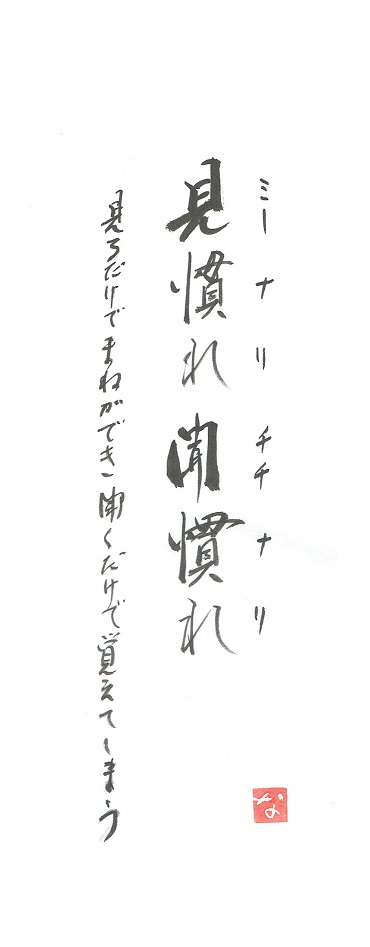 ミーナリ チチナリ
見慣れ 聞慣れ
見るだけでまねができ 聞くだけで覚えてしまう
な